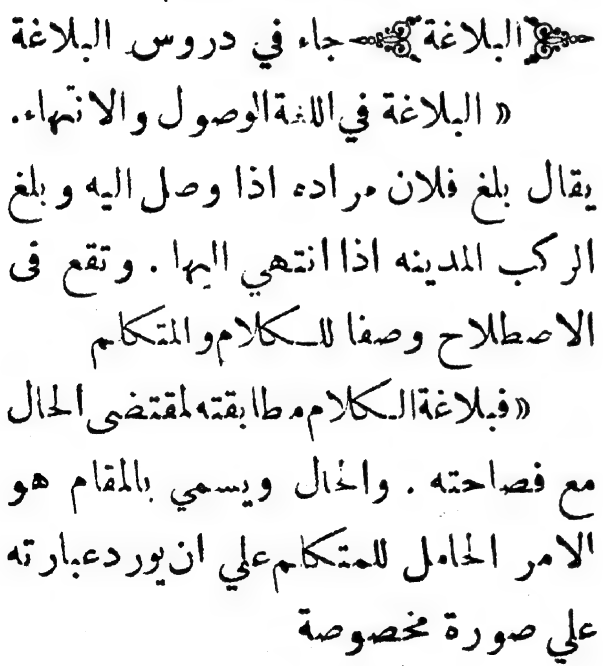 البلاغة جاء في دروس البلاغة
« البلاغة في اللغة الوصول والانتهاء.
يقال بلغ فلان مراده اذا وصل اليه وبلغ
الركب المدينه اذا انتهي اليها . وتقع فى
الاصطلاح وصفا للكلام والمتكلم
« فبلاغة الكلام مطابقته لمقتضى الحال
مع فصاحته . والحال ويسمي بالمقام هو
الامر الحامل للمتكلم علي ان يورد عبارته
علي صورة مخصوصة